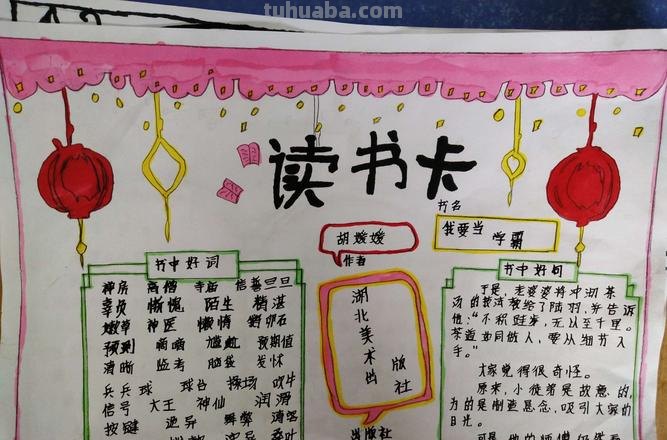 tuhuaba.com
读书卡
书名
我要当 学霸
胡媛媛
作者
湖北美术出版社
出版社
书中好词
禅房 高僧 寺庙 信誓旦旦
辜负 惭愧 陌生 精湛
嫩草 神医 懒惰 鹅卵石
预到 嘀嘀 尴尬 预期值
清晰 监考 脑袋 发怵
乒乓球 球台 操场 吹牛
信号 大王 神仙 润滑
按键 诡异 舞弊
书中好句
于是,老婆婆将冲沏茶
汤的技法教给了陆羽,并告诉
他:“不积跬步,无以至千里。
茶道如同做人,要从细节入
手。”
大家觉得很奇怪。
原来,小徒弟是故意的,
为的是制造悬念,吸引大家的
目光。
可是,他的师傅仍